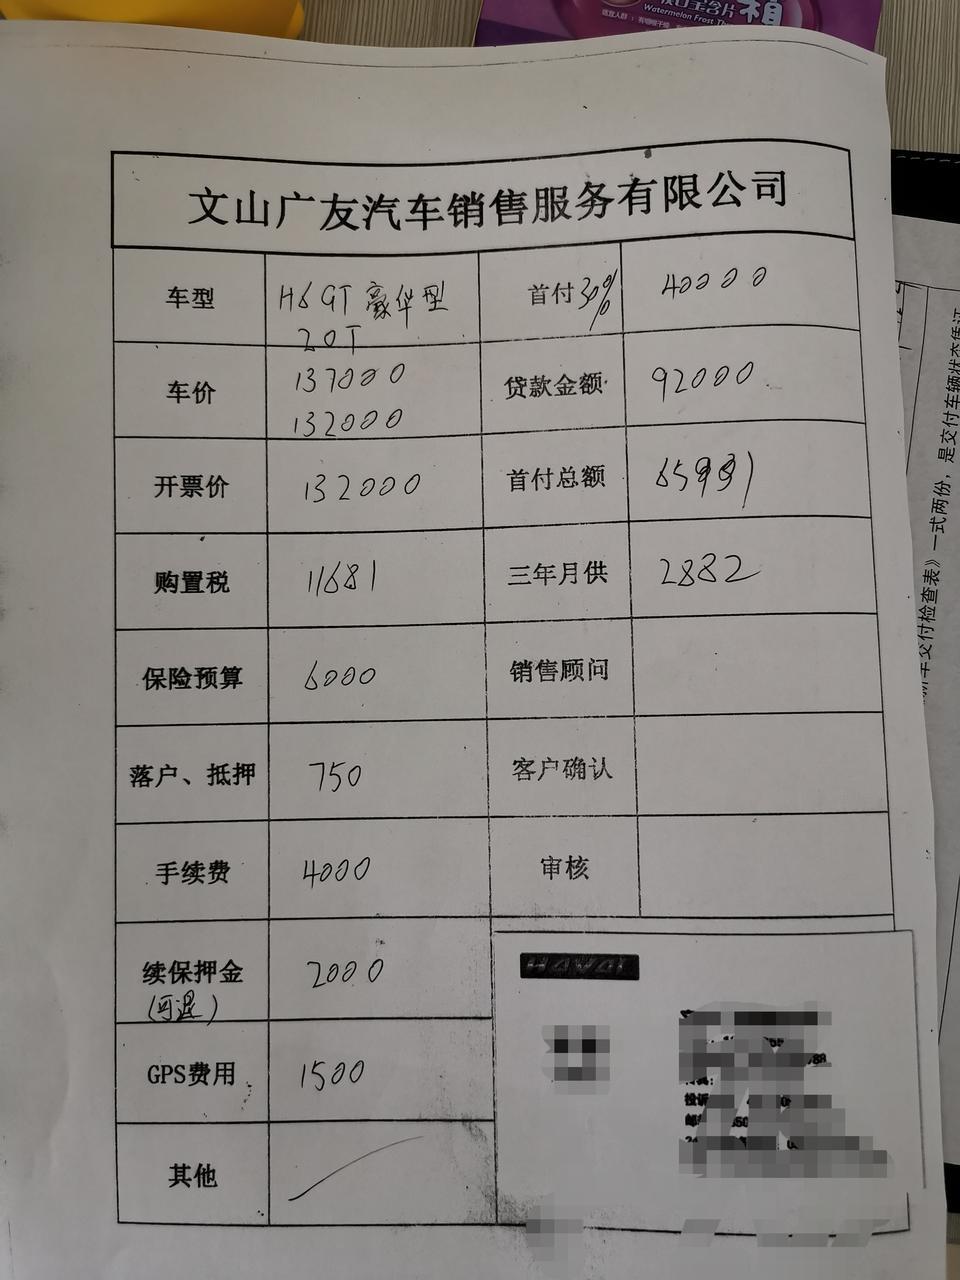 Watermelon Frost Th
文山广友汽车销售服务有限公司
车型 H6GT豪华型 20T 首付30% 40000
车价 137000 132000 贷款金额 92000
开票价 132000 首付总额
购置税 11681 三年月供 2882
保险预算 6000 销售顾问
落户、抵押 750 客户确认
手续费 4000 审核
续保押金 (可退) 2000
GPS费用 1500
其他
HAVAL
投诉
新车交付检查表》一式两份，是交付车辆状态凭证